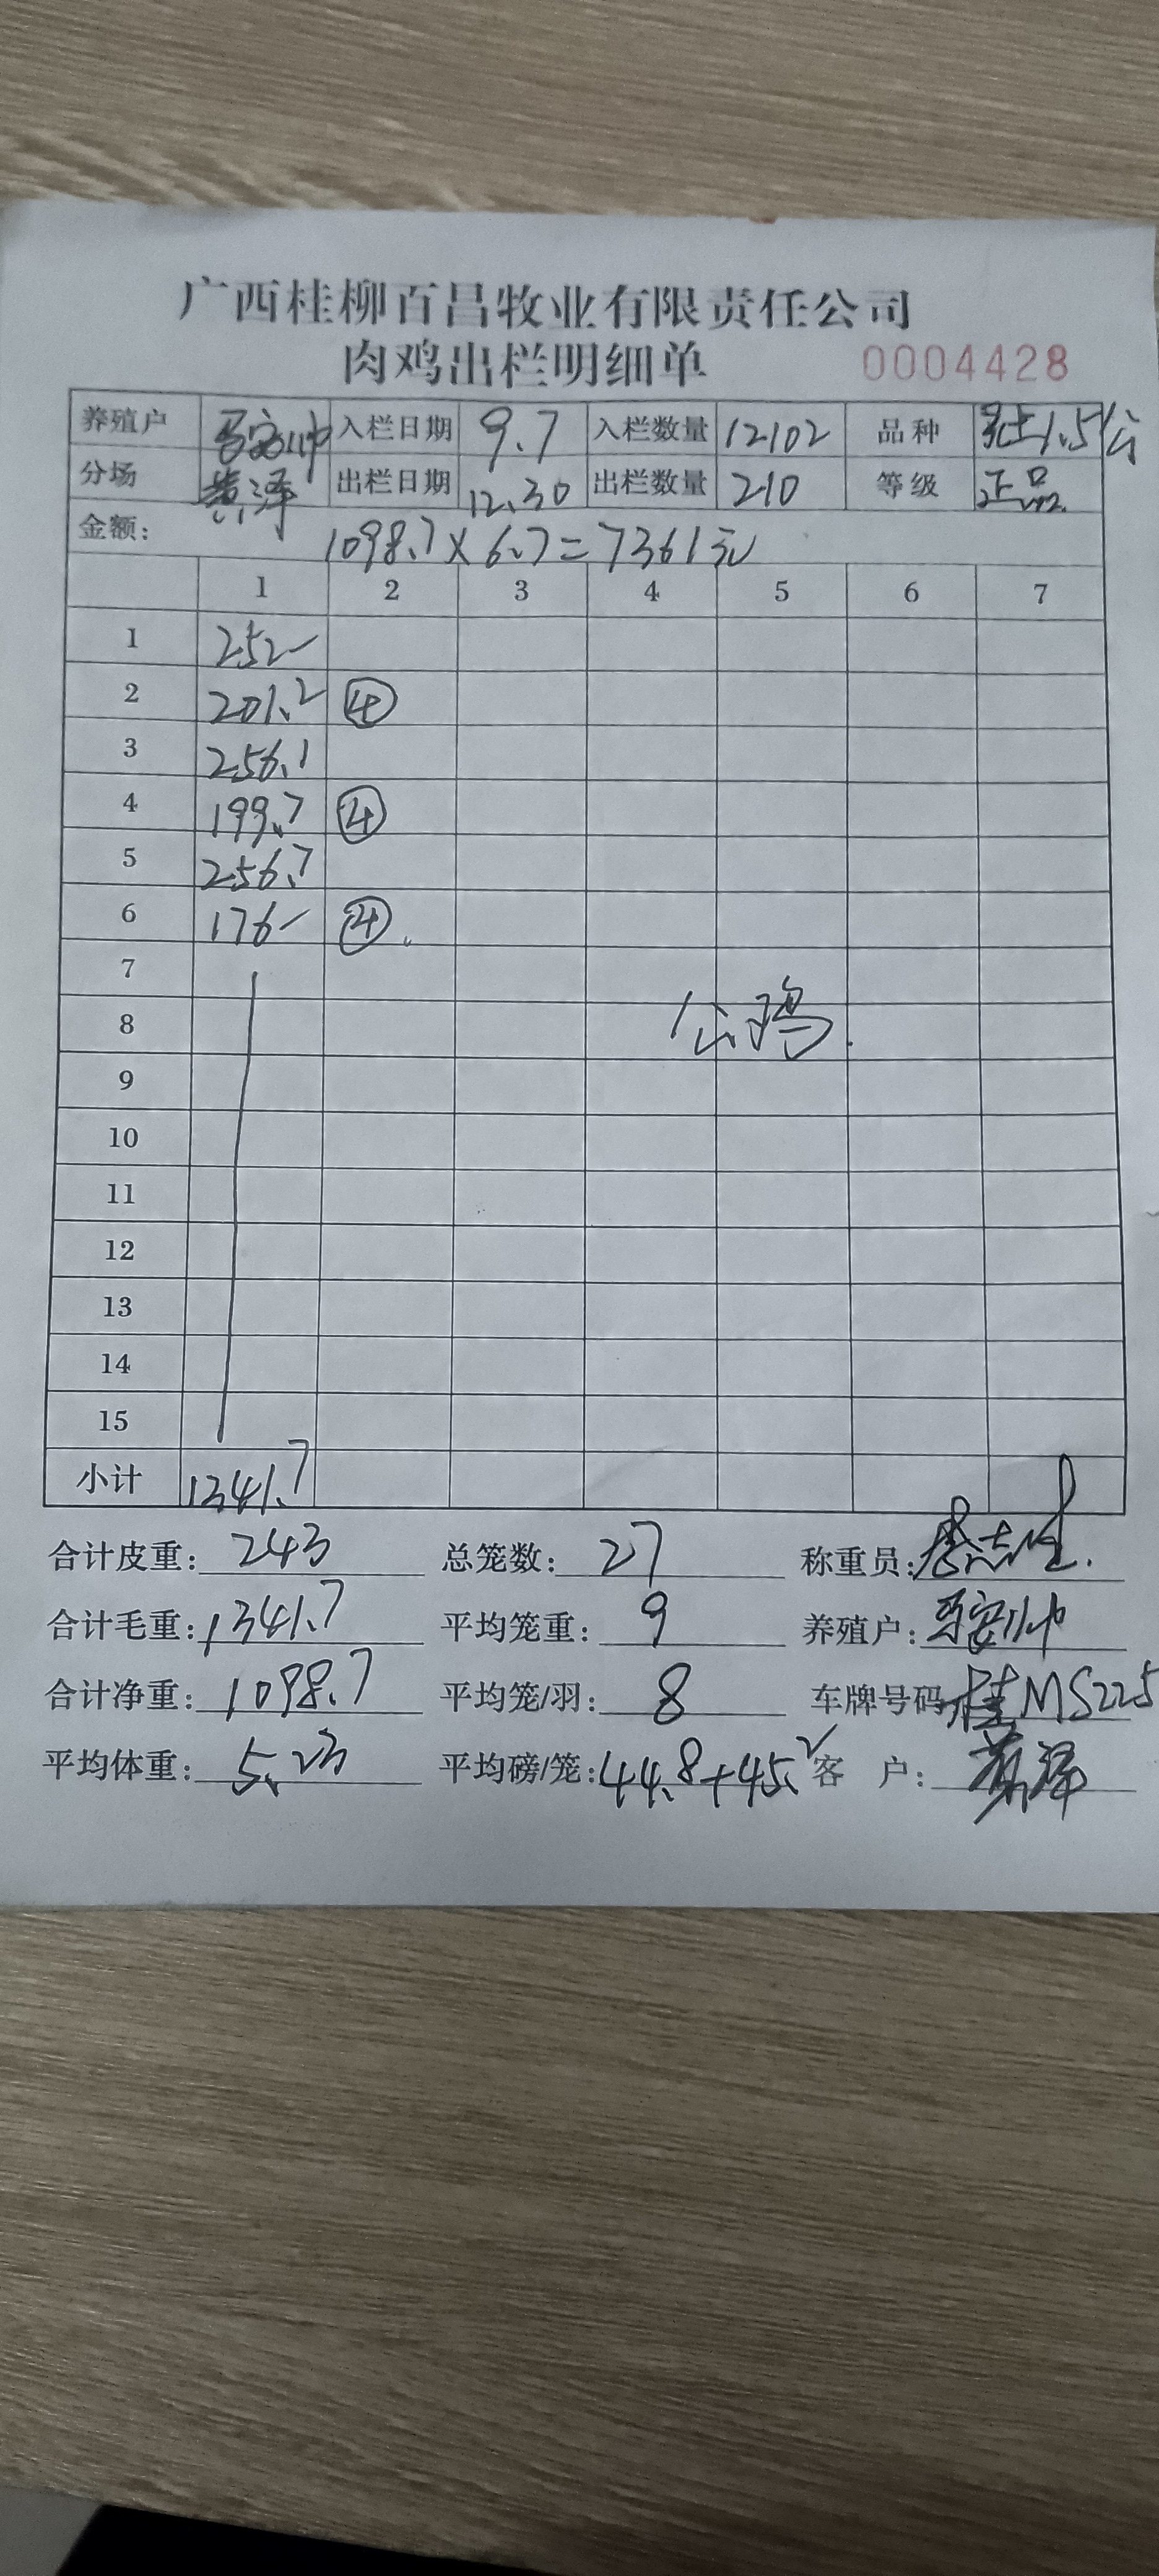 广西桂柳百昌牧业有限责任公司
肉鸡出栏明细单 0004428
养殖户 入栏日期 9.7 入栏数量 12102 品种 1.5公
分场 黄泽 出栏日期 12.30 出栏数量 210 等级 正品
金额: 1098.7×6.7=7361元
1 2 3 4 5 6 7
1 252-
2 201.2 ④
3 256.1
4 199.7 ④
5 256.7
6 176- ④
7
8 公鸡.
9
10
11
12
13
14
15
小计 1341.7
合计皮重: 243 总笼数: 27 称重员:
合计毛重: 1341.7 平均笼重: 9 养殖户:
合计净重: 1098.7 平均笼/羽: 8 车牌号码 桂MS225
平均体重: 5.23 平均磅/笼: 44.8+45.2 客户: 黄泽